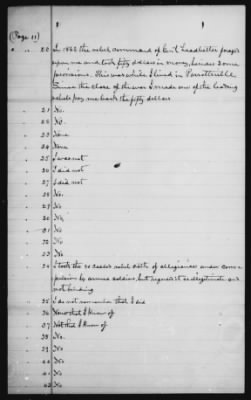 (Page 11)
20 In 1862 the rebel command of Genl Leadbetter
upon me and took fifty dollars in money, besides some
provisions. This was while I lived in
Since the close of the war I made one of the leading
rebels pay me back the fifty dollars
21 No.
22 No.
23 None
24 None
25 I was not
26 I did not
27 I did not
28 No.
29 No.
30 No.
31 No.
32 No
33 No
34 I took the so called rebel oath of allegiance under
by armed soldiers, but regard it as illegitimate and
not binding
35 I do not remember that I did
36 None that I know of
37 Not that I know of
38 No.
39 No
40 No
41 No
42 No
43 No